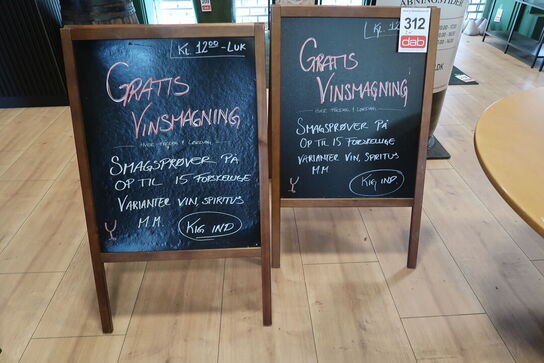 KL 12⁰⁰ - LUK
GRATIS
VINSMAGNING
HVER FREDAG & LØRDAG
SMAGSPRØVER PÅ
OP TIL 15 FORSKELLIGE
VARIANTER VIN, SPIRITUS
M.M.
KIG IND
KL 12⁰⁰
312
dab
GRATIS
VINSMAGNING
HVER FREDAG & LØRDAG
SMAGSPRØVER PÅ
OP TIL 15 FORSKELLIGE
VARIANTER VIN, SPIRITUS
M M
KIG IND
ÅBNINGSTIDER